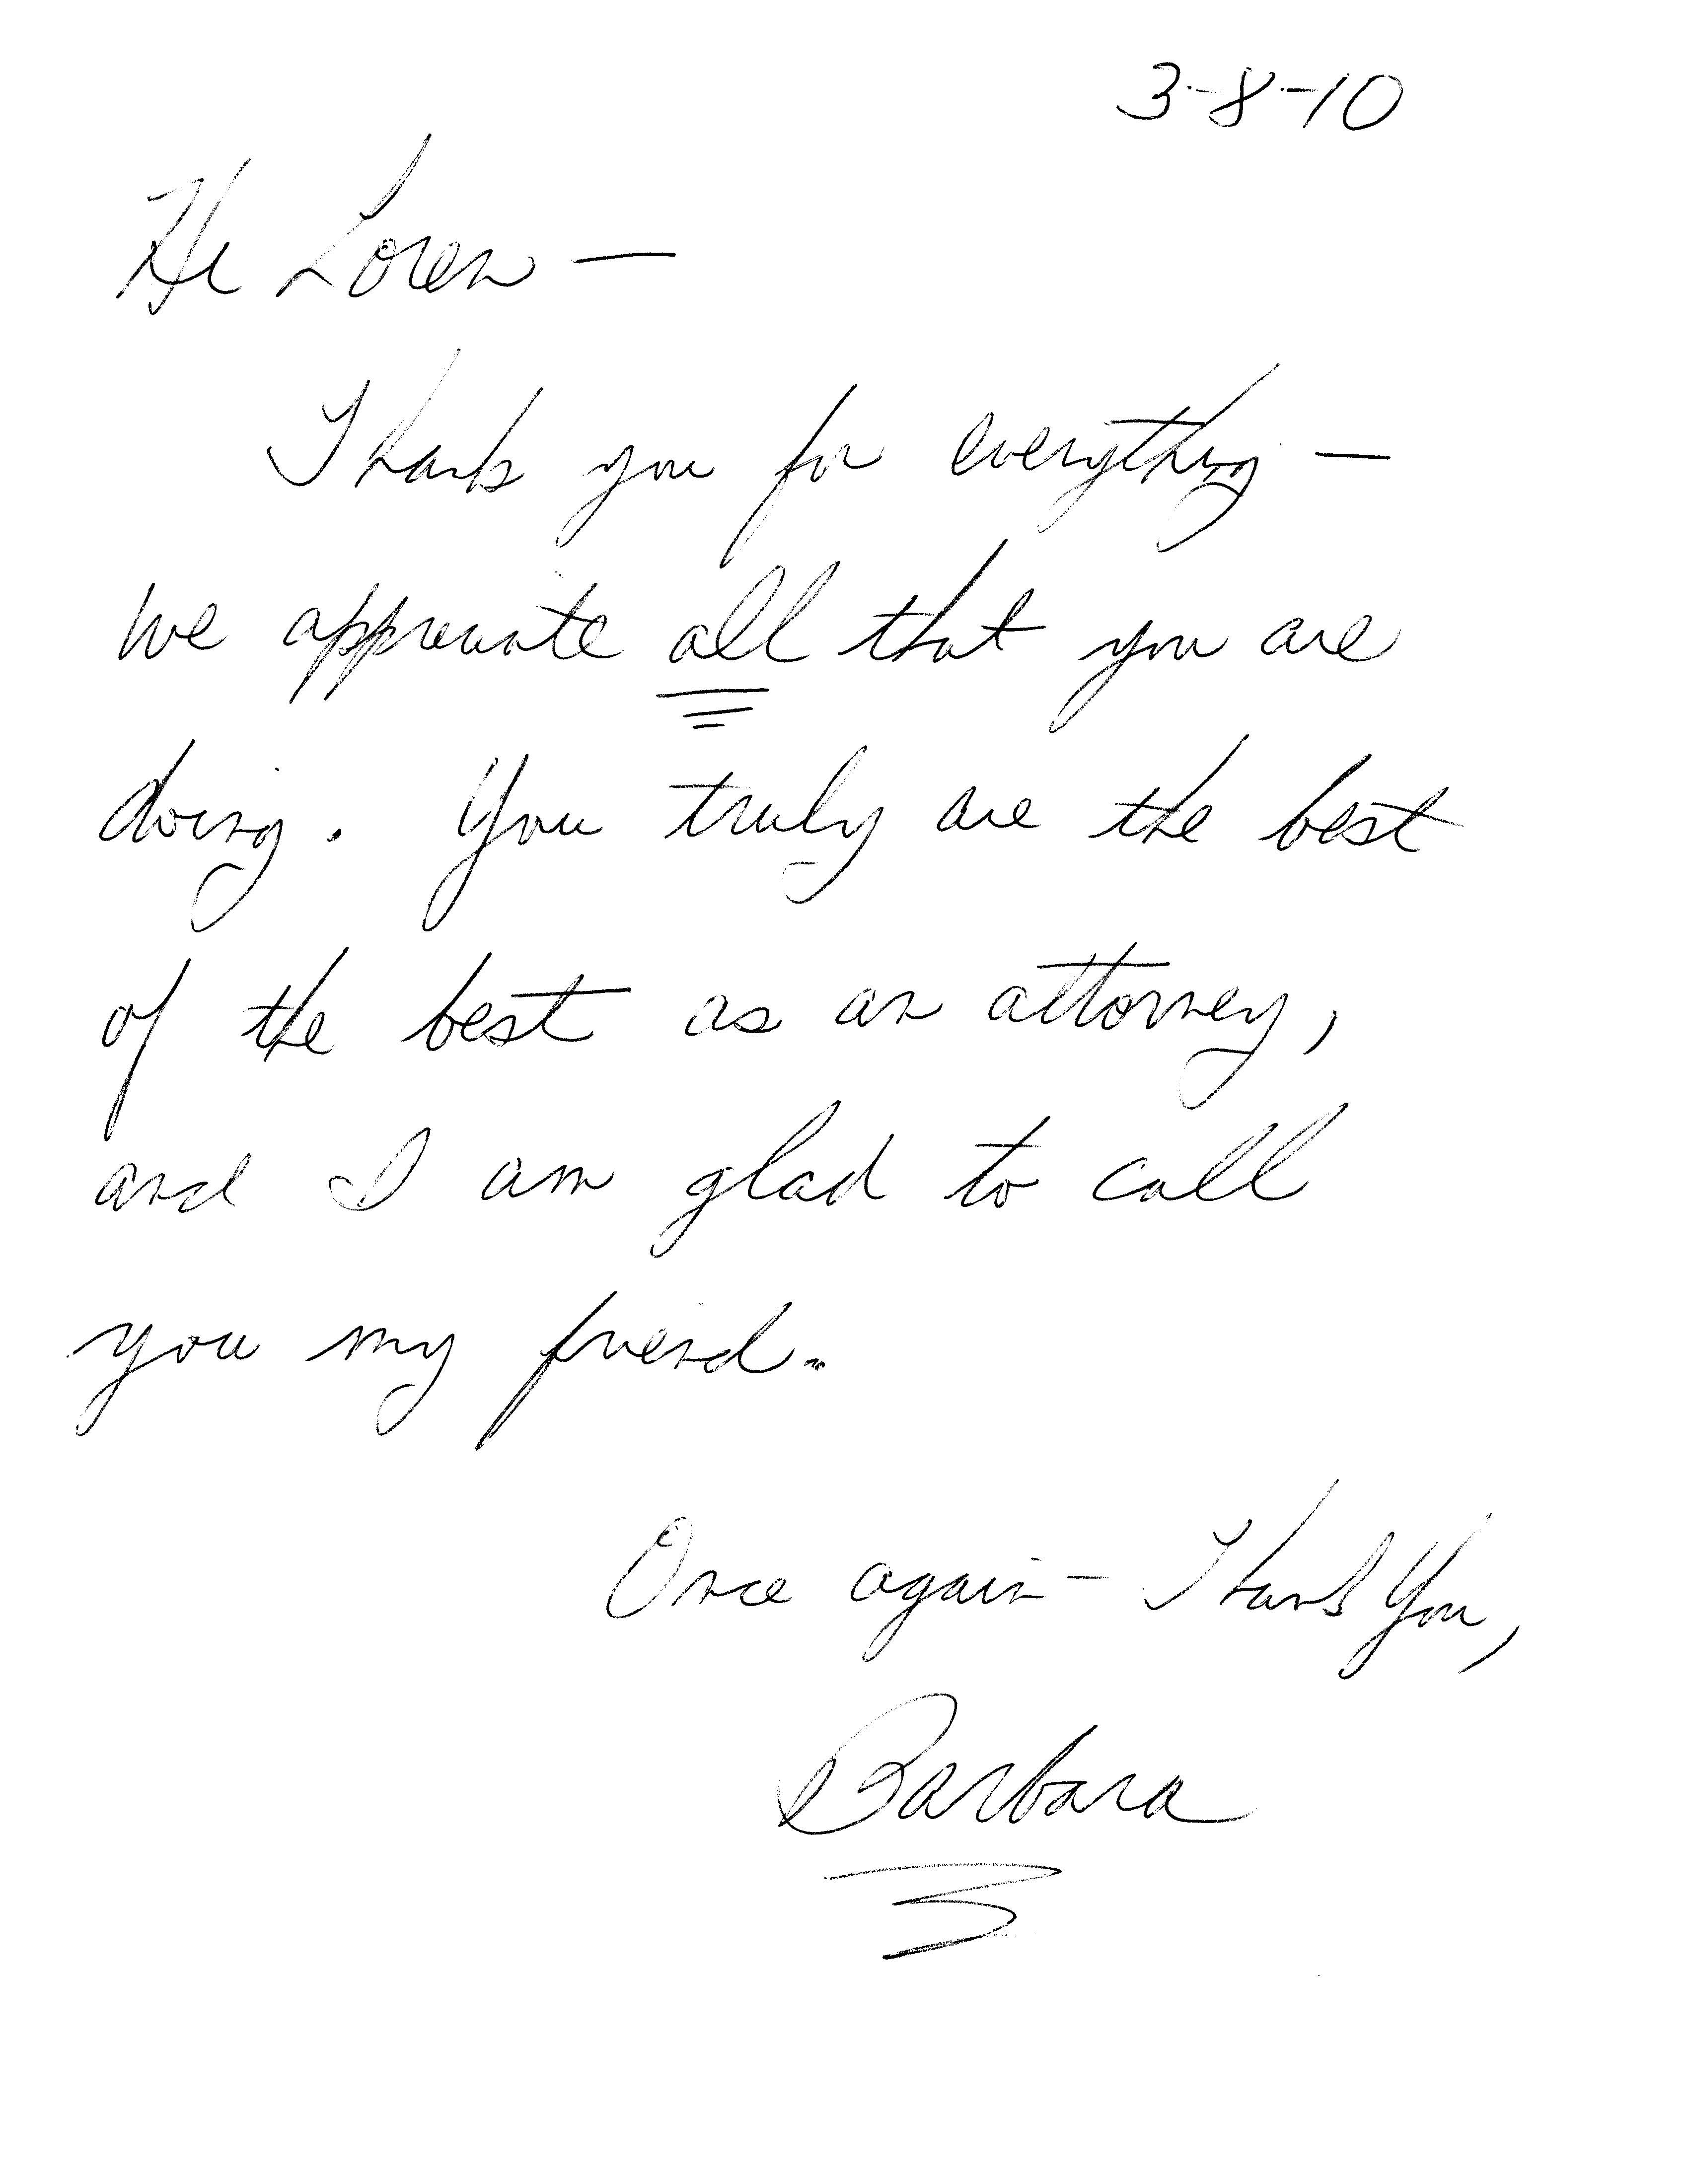 3-8-10
Hi Loren —
Thank you for everything —
we appreciate all that you are
doing. You truly are the best
of the best as an attorney,
and I am glad to call
you my friend.
Once again - Thank You,
Barbara